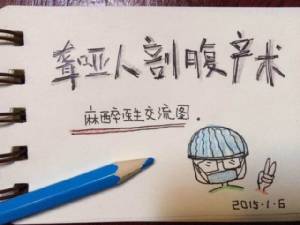 聋哑人剖腹产术
麻醉医生交流图.
2015·1·6